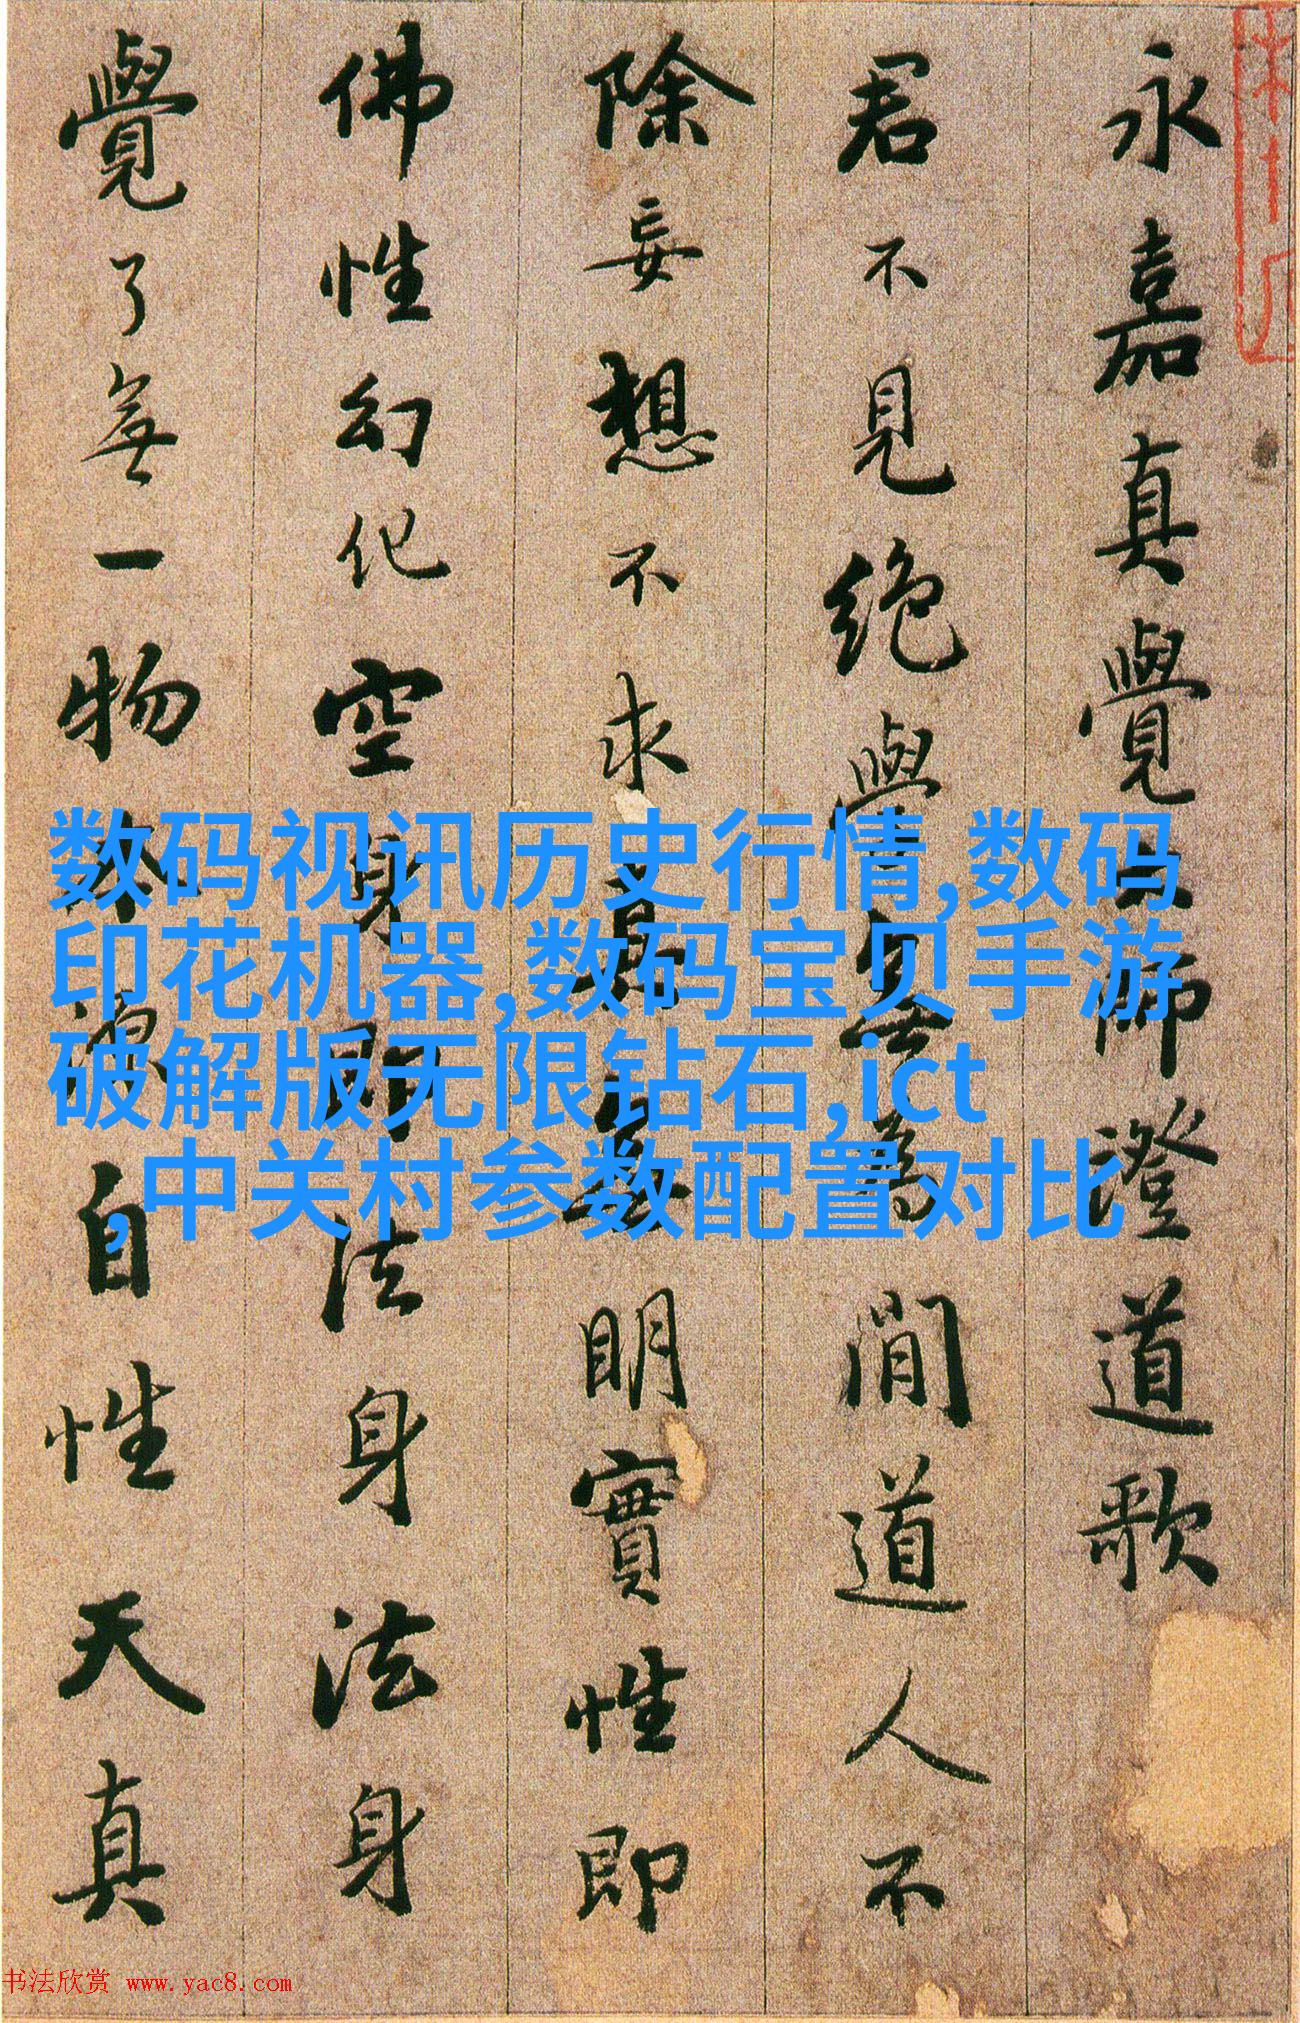 永嘉真覺大師澄道歌
君不見絕學無為閒道人不
除妄想不求真無明實性即
佛性幻化空身即法身法身
覺了無一物本源自性天真
数码视讯历史行情,数码
印花机器,数码宝贝手游
破解版无限钻石,ict
,中关村参数配置对比
书法欣赏 www.yac8.com